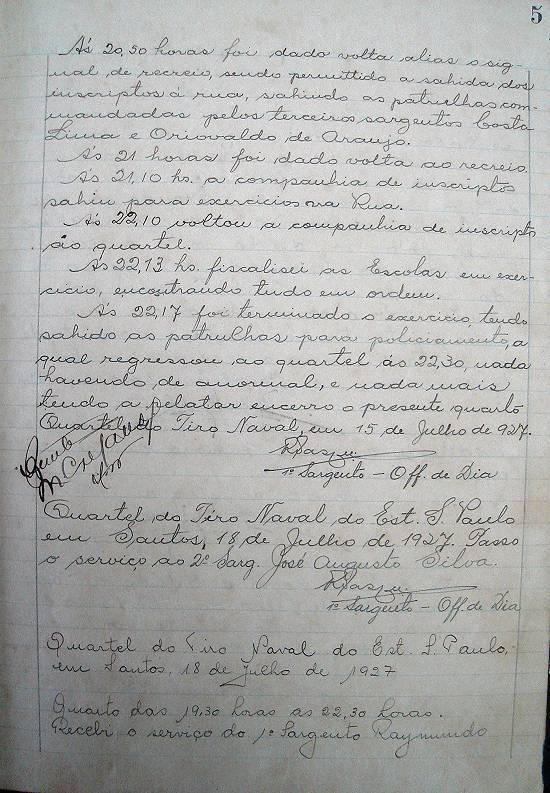 5
Ás 20,50 horas foi dado volta alias o sig-
nal de recreio, sendo permittido a sahida dos
inscriptos á rua, sahindo as patrulhas com-
mandadas pelos terceiros sargentos Costa
Lima e Oriovaldo de Araujo.
Ás 21 horas foi dado volta ao recreio.
Ás 21,10 hs. a companhia de inscriptos
sahiu para exercicios na Rua.
Ás 22,10 voltou a companhia de inscriptos
ao quartel.
As 22,13 hs. fiscalisei as Escolas em exer-
cicio, encontrando tudo em ordem.
Ás 22,17 foi terminado o exercicio, tendo
sahido as patrulhas para policiamento, a
qual regressou ao quartel ás 22,30, nada
havendo de anormal, e nada mais
tendo a relatar encerro o presente quarto
Quartel do Tiro Naval, em 15 de Julho de 927.
1º Sargento - Off. de Dia
Quartel do Tiro Naval do Est. S. Paulo
em Santos, 18 de Julho de 1927. Passo
o serviço ao 2º Sarg. José Augusto Silva.
1º Sargento - Off. de Dia
Quartel do Tiro Naval do Est. S. Paulo,
em Santos, 18 de Julho de 1927
Quarto das 19,30 horas as 22,30 horas.
Recebi o serviço do 1º Sargento Raymundo